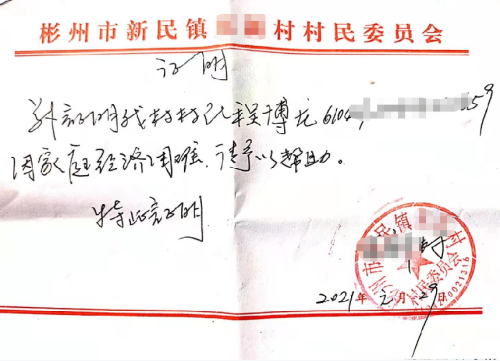 彬州市新民镇 村村民委员会
证明
兹证明我村村民程博龙 610 59
因家庭经济困难，请予以帮助。
特此证明
村
州市新民镇 村村民委员会
2021年元月29日